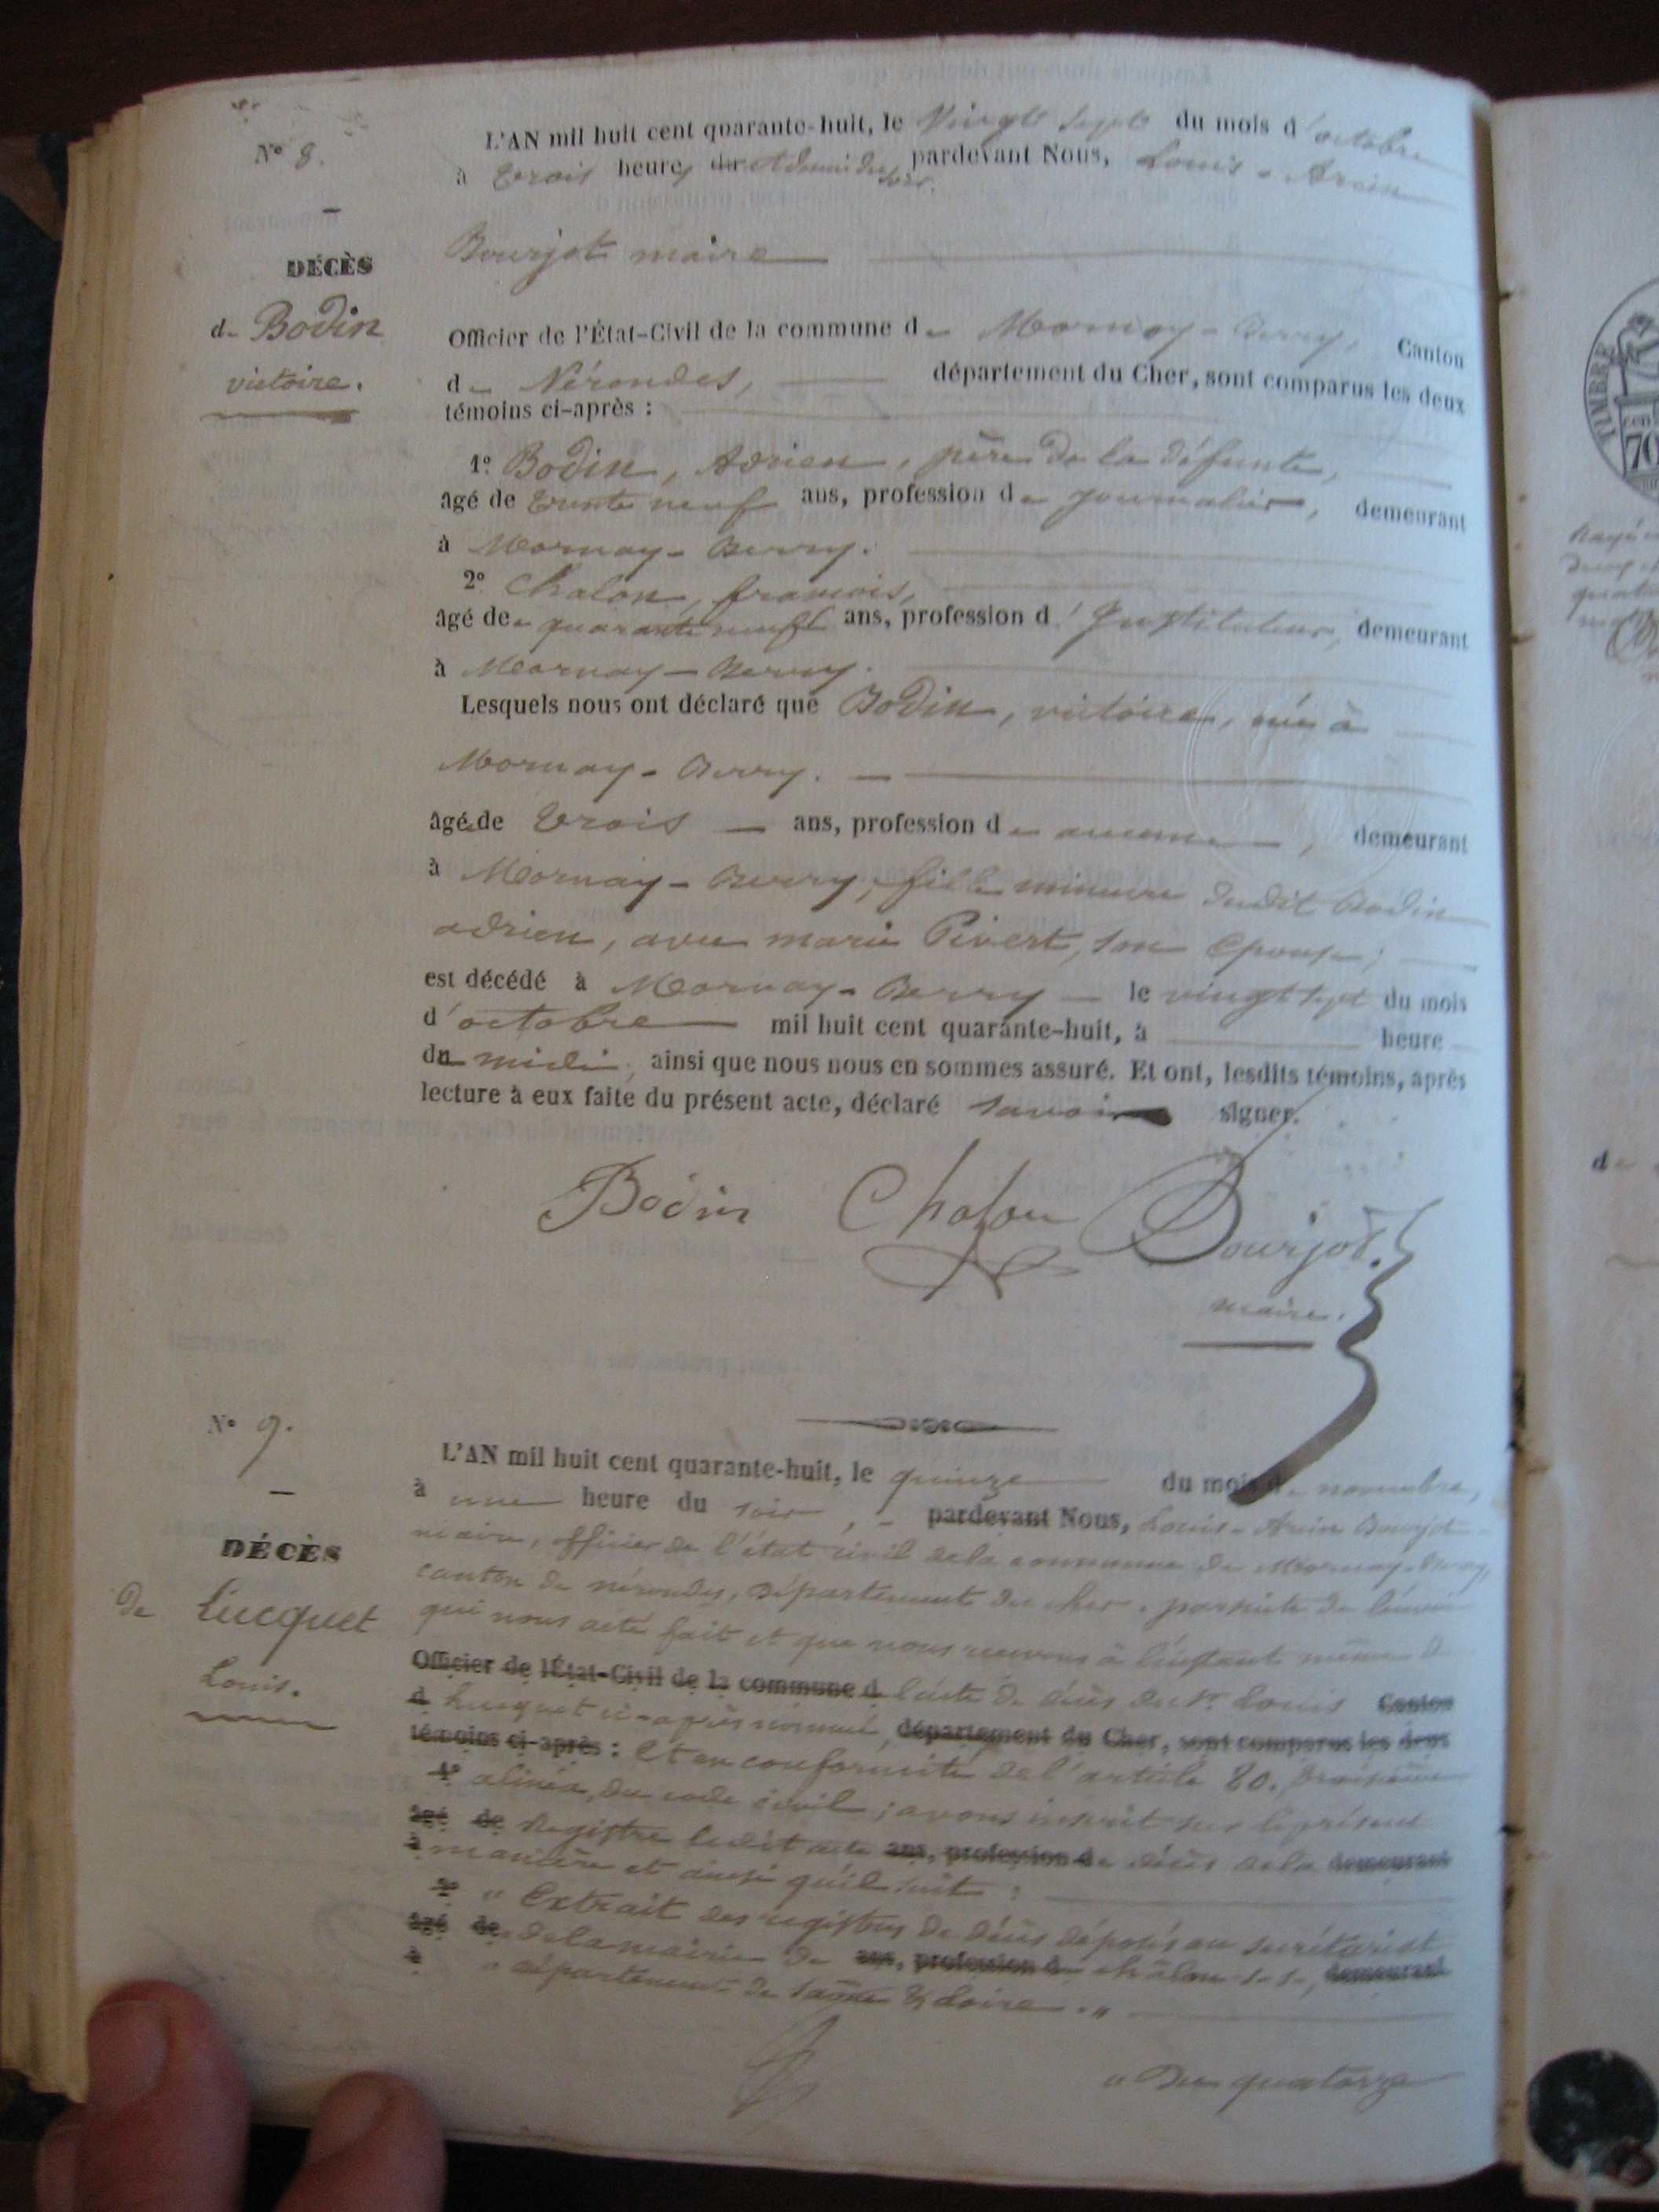 N° 8.
DÉCÈS
de Bodin
victoire.
L'AN mil huit cent quarante-huit, le Vingt Sept du mois d'octobre
à trois heures et demi du soir. pardevant Nous, Louis - Arsin
Bourjot maire
Officier de l'État-Civil de la commune de Mornay-Berry, Canton
de Nérondes, département du Cher, sont comparus les deux
témoins ci-après :
1° Bodin, Adrien, père de la défunte,
âgé de trente neuf ans, profession de journalier, demeurant
à Mornay-Berry.
2° Chalon, francois,
âgé de quarante neuf ans, profession d'Instituteur, demeurant
à Mornay-Berry.
Lesquels nous ont déclaré que Bodin, victoire, née à
Mornay-Berry.
âgé de trois ans, profession de aucune, demeurant
à Mornay-Berry, fille mineure dudit Bodin
adrien, avec marie Pivert, son Epouse;
est décédé à Mornay-Berry le vingt sept du mois
d'octobre mil huit cent quarante-huit, à heure
du midi, ainsi que nous nous en sommes assuré. Et ont, lesdits témoins, après
lecture à eux faite du présent acte, déclaré savoir signer.
Bodin Chalon Bourjot.
maire.
N° 9.
DÉCÈS
De Lucquet
Louis.
L'AN mil huit cent quarante-huit, le quinze du mois de novembre,
à une heure du soir, pardevant Nous, Louis - Arsin Bourjot
maire, officier de l'état civil de la commune de Mornay-Berry,
canton de nérondes, département du cher, par suite de l'envoi
qui nous a été fait et que nous recevons à l'instant même de
Officier de l'État-Civil de la commune d l'acte de décès du Sr. Louis Canton
d Lucquet ci-après nommé, département du Cher, sont comparus les deux
témoins ci-après : Et en conformité de l'article 80. troisième
1° alinéa, du code civil; avons inscrit sur le présent
âgé de Registre ledit acte ans, profession de décès de la demeurant
à manière et ainsi qu'il suit :
2° " Extrait des registres de décès déposés au secrétariat
âgé de " de la mairie de ans, profession de châlon s-s-, demeurant
à " département de saône & Loire. "
" Du quatorze